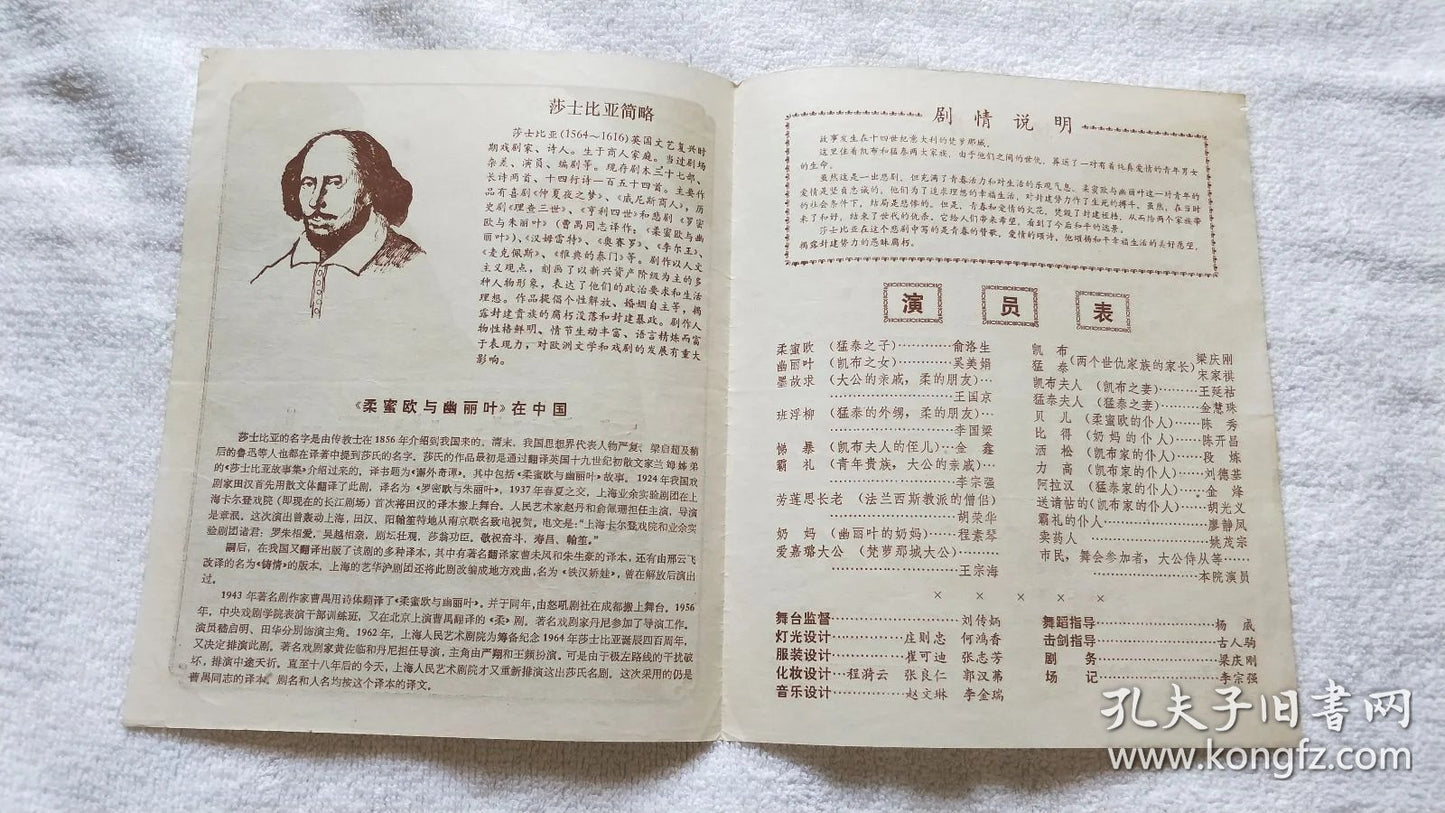 莎士比亚简略
莎士比亚(1564～1616)英国文艺复兴时
期戏剧家、诗人。生于商人家庭。当过剧场
杂差、演员、编剧等。现存剧本三十七部、
长诗两首、十四行诗一百五十四首。主要作
品有喜剧《仲夏夜之梦》、《威尼斯商人》，历
史剧《理查三世》、《亨利四世》和悲剧《罗密
欧与朱丽叶》(曹禺同志译作：《柔蜜欧与幽
丽叶》)、《汉姆雷特》、《奥赛罗》、《李尔王》、
《麦克佩斯》、《雅典的泰门》等。剧作以人文
主义观点，刻画了以新兴资产阶级为主的多
种人物形象，表达了他们的政治要求和生活
理想。作品提倡个性解放、婚姻自主等，揭
露封建贵族的腐朽没落和封建暴政。剧作人
物性格鲜明、情节生动丰富、语言精炼而富
于表现力，对欧洲文学和戏剧的发展有重大
影响。
《柔蜜欧与幽丽叶》在中国
莎士比亚的名字是由传教士在1856年介绍到我国来的。清末，我国思想界代表人物严复、梁启超及稍
后的鲁迅等人也都在译著中提到莎氏的名字。莎氏的作品最初是通过翻译英国十九世纪初散文家兰姆姊弟
的《莎士比亚故事集》介绍过来的。译书题为《澥外奇谭》，其中包括《柔蜜欧与幽丽叶》故事。1924年我国戏
剧家田汉首先用散文体翻译了此剧，译名为《罗密欧与朱丽叶》。1937年春夏之交，上海业余实验剧团在上
海卡尔登戏院（即现在的长江剧场）首次将田汉的译本搬上舞台。人民艺术家赵丹和俞佩珊担任主演，导演
是章泯。这次演出曾轰动上海，田汉、阳翰笙特地从南京联名致电祝贺。电文是：“上海卡尔登戏院和业余实
验剧团诸君：罗朱相爱，吴越相亲，剧坛壮观，莎翁功臣，敬祝奋斗，寿昌、翰笙。”
嗣后，在我国又翻译出版了该剧的多种译本，其中有著名翻译家曹未风和朱生豪的译本，还有由邢云飞
改译的名为《铸情》的版本。上海的艺华沪剧团还将此剧改编成地方戏曲，名为《铁汉娇娃》，曾在解放后演出
过。
1943年著名剧作家曹禺用诗体翻译了《柔蜜欧与幽丽叶》。并于同年，由怒吼剧社在成都搬上舞台。1956
年，中央戏剧学院表演干部训练班，又在北京上演曹禺翻译的《柔》剧。著名戏剧家丹尼参加了导演工作。
演员嵇启明、田华分别饰演主角。1962年，上海人民艺术剧院为筹备纪念1964年莎士比亚诞辰四百周年，
又决定排演此剧。著名戏剧家黄佐临和丹尼担任导演，主角由严翔和王频扮演。可是由于极左路线的干扰破
坏，排演中途夭折。直至十八年后的今天，上海人民艺术剧院才又重新排演这出莎氏名剧。这次采用的仍是
曹禺同志的译本。剧名和人名均按这个译本的译文。
剧情说明
故事发生在十四世纪意大利的梵萝那城。
这里住着凯布和猛泰两大家族，由于他们之间的世仇，葬送了一对有着纯真爱情的青年男女
的生命。
虽然这是一出悲剧，但充满了青春活力和对生活的乐观气息。柔蜜欧与幽丽叶这一对青年的
爱情是坚贞忠诚的。他们为了追求理想的幸福生活，对封建势力作了生死的搏斗。虽然，在当时
的社会条件下，结局是悲惨的。但是，青春和爱情的火花，焚毁了封建桎梏，从而给两个家族带
来了和好，结束了世代的仇杀。它给人们带来希望，看到了今后和平的远景。
莎士比亚在这个悲剧中写的是青春的赞歌，爱情的颂诗。他颂扬和平幸福生活的美好愿望，
揭露封建势力的愚昧腐朽。
演员表
柔蜜欧（猛泰之子）………俞洛生
幽丽叶（凯布之女）………奚美娟
墨故求（大公的亲戚，柔的朋友）…
………王国京
班浮柳（猛泰的外甥，柔的朋友）…
………李国梁
悌暴（凯布夫人的侄儿）…金鑫
霸礼（青年贵族，大公的亲戚）…
………李宗强
芳莲恩长老（法兰西斯教派的僧侣）
………胡荣华
奶妈（幽丽叶的奶妈）……程素琴
爱嘉璐大公（梵萝那城大公）………
………王宗海
凯布
猛泰（两个世仇家族的家长）梁庆刚
宋家祺
凯布夫人（凯布之妻）………王延枯
猛泰夫人（猛泰之妻）………金慧珠
贝儿（柔蜜欧的仆人）………陈秀
比得（奶妈的仆人）………陈开昌
洒松（凯布家的仆人）………段炼
力高（凯布家的仆人）………刘德基
阿拉汉（猛泰家的仆人）……金烽
送请帖的（凯布家的仆人）…胡光义
霸礼的仆人………廖静凤
卖药人………姚茂宗
市民，舞会参加者，大公侍从等……
………本院演员
× × × × ×
舞台监督………刘传炳
灯光设计………庄则忠 何鸿香
服装设计………崔可迪 张志芳
化妆设计…程漪云 张良仁 郭汉茀
音乐设计………赵文琳 李金瑞
舞蹈指导………杨威
击剑指导………古人驹
剧务………梁庆刚
场记………李宗强
孔夫子旧书网
www.kongfz.com